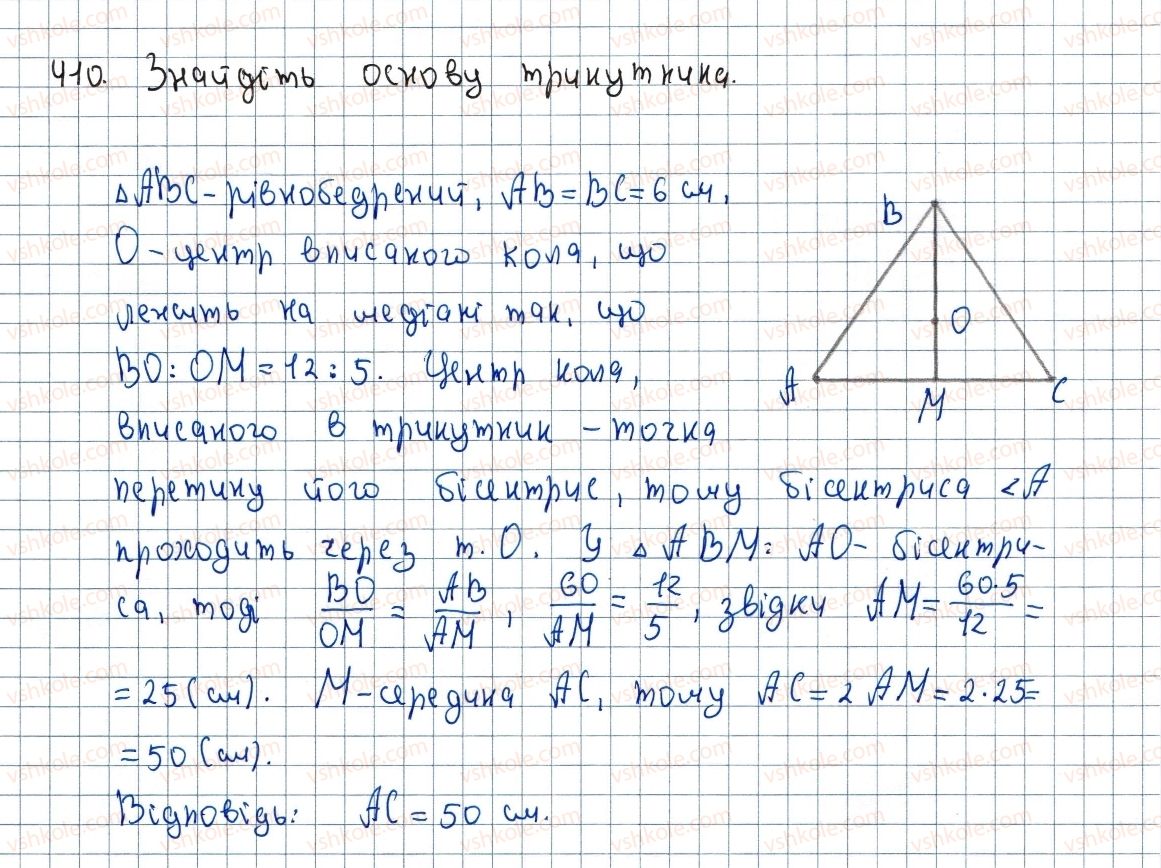 410. Знайдіть основу трикутника.
△ABC - рівнобедрений, AB = BC = 6 см,
O - центр вписаного кола, що
лежить на медіані так, що
BO : OM = 12 : 5. Центр кола,
вписаного в трикутник - точка
перетину його бісектрис, тому бісектриса <A
проходить через т. O. У △ABM: AO - бісектри-
са, тоді BO/OM = AB/AM, 60/AM = 12/5, звідки AM = 60·5/12 =
= 25 (см). M - середина AC, тому AC = 2 AM = 2·25 =
= 50 (см).
Відповідь: AC = 50 см.
B
O
A
M
C
vshkole.com